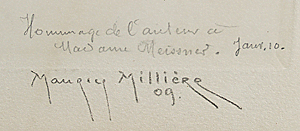 Hommage de l'auteur à
Madame Meissner. Janv. 10.
Maurice Millière
09.